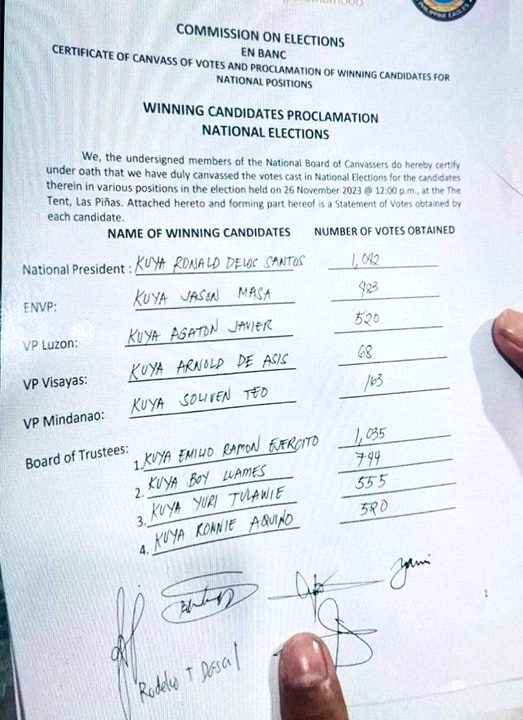 COMMISSION ON ELECTIONS
EN BANC
CERTIFICATE OF CANVASS OF VOTES AND PROCLAMATION OF WINNING CANDIDATES FOR
NATIONAL POSITIONS
WINNING CANDIDATES PROCLAMATION
NATIONAL ELECTIONS
We, the undersigned members of the National Board of Canvassers do hereby certify
under oath that we have duly canvassed the votes cast in National Elections for the candidates
therein in various positions in the election held on 26 November 2023 @ 12:00 p.m., at the The
Tent, Las Piñas. Attached hereto and forming part hereof is a Statement of Votes obtained by
each candidate.
NAME OF WINNING CANDIDATES NUMBER OF VOTES OBTAINED
National President : KUYA RONALD DELOS SANTOS 1,042
ENVP: KUYA JASON MASA 983
VP Luzon: KUYA AGATON JAVIER 520
VP Visayas: KUYA ARNOLD DE ASIS 68
VP Mindanao: KUYA SOLIVEN TEO 163
Board of Trustees: 1. KUYA EMILIO RAMON EJERCITO 1,035
2. KUYA BOY LLAMES 744
3. KUYA YURI TULAWIE 555
4. KUYA RONNIE AQUINO 520
1